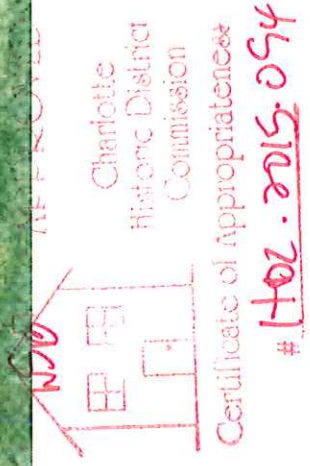 APPROVED
Charlotte
Historic District
Commission
Certificate of Appropriateness
# HDC·2015·094